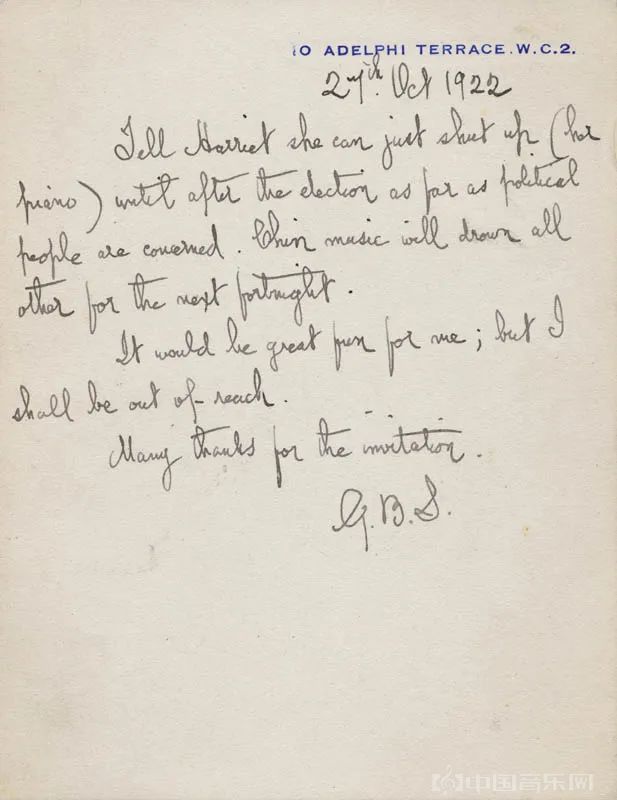 10 ADELPHI TERRACE. W.C.2.
27th. Oct 1922
Tell Harriet she can just shut up (her
piano) until after the election as far as political
people are concerned. Chin music will drown all
other for the next fortnight.
It would be great fun for me; but I
shall be out of reach.
Many thanks for the invitation.
G.B.S.
中国音乐网